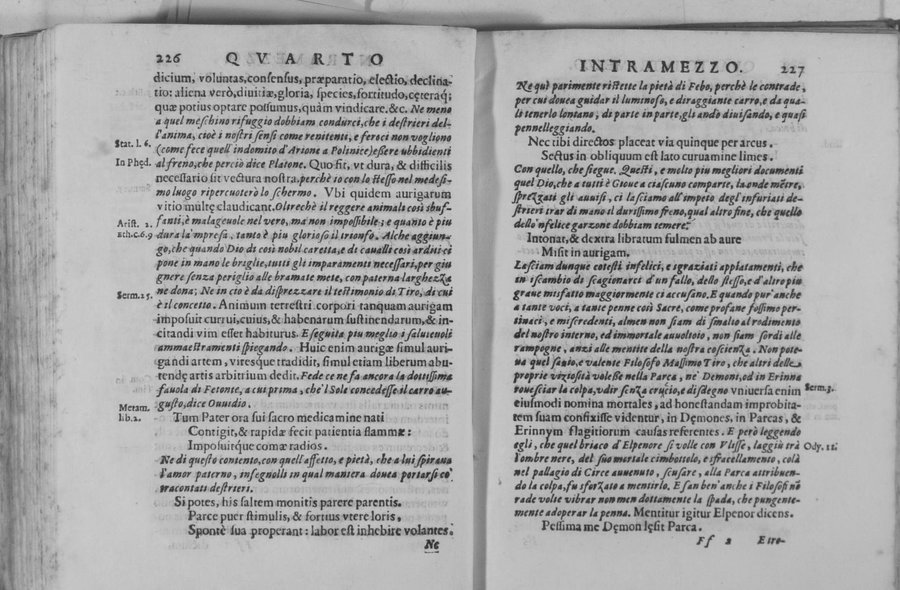 226 QVARTO
dicium, voluntas, consensus, præparatio, electio, declina-
tio: aliena verò, diuitiæ, gloria, species, fortitudo, cęteraq;
quæ potius optare possumus, quàm vindicare. &c. Ne meno
a quel meschino rifuggio dobbiam condurci, che i destrieri del-
l'anima, cioè i nostri sensi come renitenti, e feroci non vogliono
Stat. l. 6.
(come fece quell'indomito d'Arione a Polinice) essere vbbidienti
In Phęd.
al freno, che perciò dice Platone. Quo fit, vt dura, & difficilis
necessariò sit vectura nostra. perchè io con lo stesso nel medesi-
mo luogo ripercuoterò lo schermo. Vbi quidem aurigarum
vitio multę claudicant. Oltrechè il reggere animali così sbuf-
fanti, è malageuole nel vero, ma non impossibile; e quanto è piu
Arist. 2.
Eth. c. 6. 9
dura la'mpresa, tanto è piu glorioso il trionfo. Alche aggiun-
go, che quando Dio di così nobil caretta, e di caualli così arditi ci
pone in mano le braglie, tutti gli imparamenti necessari, per giu
gnere senza periglio alle bramate mete, con paterna larghezza
ne dona; Ne in cio è da disprezzare il testimonio di Tiro, di cui
Serm. 25.
è il concetto. Animum terrestri corpori tanquam aurigam
imposuit currui, cuius, & habenarum sustinendarum, & in-
citandi vim esset habiturus. E seguita piu meglio i saluteuoli
ammaestramenti spiegando. Huic enim aurigæ simul auri-
gandi artem, viresque tradidit, simul etiam liberum abu-
tendę artis arbitrium dedit. Fede ce ne fa ancora la dottissima
fauola di Fetonte, a cui prima, che'l Sole concedesse il carro au-
gusto, dice Ouuidio.
Metam.
lib. 2.
Tum Pater ora sui sacro medicamine nati
Contigit, & rapidæ fecit patientia flammæ:
Imposuitque comæ radios.
Ne di questo contento, con quell'affetto, e pietà, che a lui spiraua
l'amor paterno, insegnolli in qual maniera douea portarsi co'
racontati destrieri.
Si potes, his saltem monitis parere parentis.
Parce puer stimulis, & fortius vtere loris,
Spontè sua properant: labor est inhibere volantes.
Ne
INTRAMEZZO. 227
Ne quì parimente ristette la pietà di Febo, perchè le contrade,
per cui douea guidar il luminoso, e diraggiante carro, e da qua-
li tenerlo lontano, di parte in parte, gli andò diuisando, e quasi
pennelleggiando.
Nec tibi directos placeat via quinque per arcus.
Sectus in obliquum est lato curuamine limes.
Con quello, che siegue. Questi, e molto piu migliori documenti
quel Dio, che a tutti è Gioue a ciascuno comparte, la onde mẽtre,
sprezzati gli auuisi, ci lasciamo all'impeto degl'infuriati de-
strieri trar di mano il durissimo freno, qual altro fine, che quello
dello'nfelice garzone dobbiam temere?
Intonat, & dextra libratum fulmen ab aure
Misit in aurigam.
Lasciam dunque cotesti infelici, e sgraziati appiatamenti, che
in iscambio di scagionarci d'un fallo, dello stesso, e d'altro piu
graue misfatto maggiormente ci accusano. E quando pur'anche
a tante voci, a tante penne così Sacre, come profane fossimo per-
tinaci, e miscredenti, almen non siam di smalto al rodimento
del nostro interno, ed immortale auoltoio, non siam sordi alle
rampogne, anzi alle mentite della nostra coscienza. Non pote-
ua quel sauio, e valente Filosofo Massimo Tiro, che altri delle
proprie viziosità volesse nella Parca, ne' Demoni, ed in Erinne
rouesciar la colpa, vdir senza crucio, e disdegno vniuersa enim
Serm. 3.
eiusmodi nomina mortales, ad honestandam improbita-
tem suam confixisse videntur, in Dęmones, in Parcas, &
Erinnym flagitiorum causas referentes. E però leggendo
egli, che quel briaco d'Elpenore si volle con Vlisse, laggiù trà
Ody. 11.
l'ombre nere, del suo mortale cimbottolo, e sfracellamento, colà
nel pallagio di Circe auuenuto, scusare, alla Parca attribuen-
do la colpa, fu sforzato a mentirlo. E san ben'anche i Filosofi nõ
rade volte vibrar non men dottamente la spada, che pungente-
mente adoperar la penna. Mentitur igitur Elpenor dicens.
Pessima me Dęmon lęsit Parca.
Ff 2 E tro-